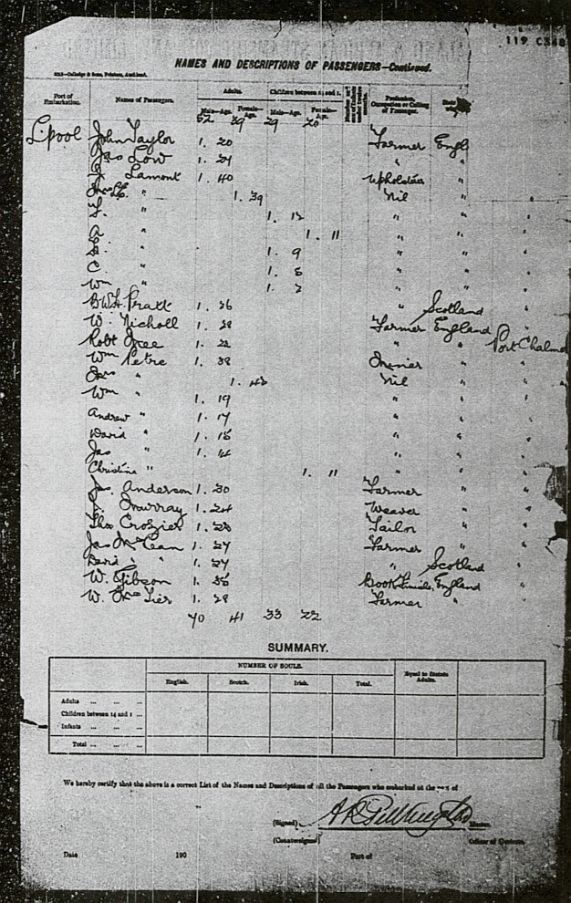 119 C348
NAMES AND DESCRIPTIONS OF PASSENGERS—Continued.
Port of Embarkation. Names of Passengers. Adults. Male—Age. Female—Age. Children between 14 and 1. Male—Age. Female—Age. Profession, Occupation or Calling of Passenger.
52 39 29 20
L'pool John Taylor 1. 20 Farmer Engl
Jas Low 1. 21 "
J. Lamont 1. 40 Upholsterer "
" 1. 39 Nil "
" 1. 12 " "
" 1. 11 " "
" 1. 9 " "
C. " 1. 5 " "
Wm " 1. 2 " "
Pratt 1. 26 " Scotland
W. Nicholl 1. 28 Farmer England
Robt 1. 22 " " Port Chalm
Wm Petrie 1. 38 "
" 1. 43 Nil "
Wm " 1. 19 " "
Andrew " 1. 17 " "
David " 1. 15 " "
Jas " 1. 14 " "
Christina " 1. 11 " "
Jas. Anderson 1. 30 Farmer "
J. Murray 1. 24 Weaver "
Thos Crozier 1. 23 Tailor "
Jas McLean 1. 27 Farmer "
David " 1. 27 " Scotland
W. Gibson 1. 35 England
W. 1. 28 Farmer "
70 41 33 22
SUMMARY.
NUMBER OF SOULS. Equal to Statute Adults.
English. Scotch. Irish. Total.
Adults ... ... ...
Children between 14 and 1 ...
Infants ... ... ...
Total ... ... ...
We hereby certify that the above is a correct List of the Names and Descriptions of all the Passengers who embarked at the Port of
(Signed) Master.
(Countersigned) Officer of Customs.
Date 190 Port of